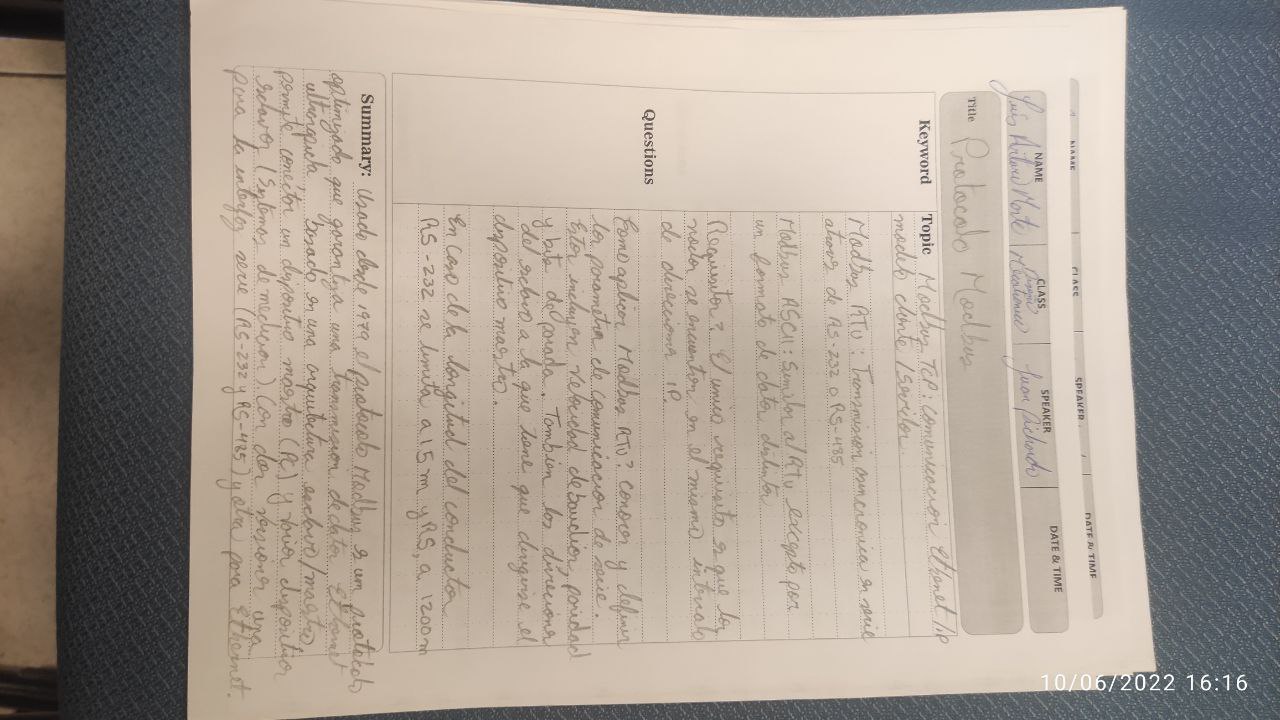 NAME
CLASS
SPEAKER
DATE & TIME
NAME
CLASS
SPEAKER
DATE & TIME
Luis Arturo
Juan
Title
Protocolo Modbus
Keyword
Topic
Modbus TCP: comunicacion Ethernet/IP
modelo cliente/servidor
Modbus RTU: Transmision asincronica en serie
atraves de RS-232 o RS-485
Modbus ASCII: Similar al RTU excepto por
un formato de datos distinta
Questions
Requisitos? El unico requisito es que los
nodos se encuentren en el mismo intervalo
de direcciona IP
Como aplicar Modbus RTU? conocer y definir
los parametros de comunicacion de serie.
Estos incluyen velocidad de paridad
y bits de parada. Tambien las direcciones
del esclavo a la que tiene que dirigirse el
dispositivo maestro.
En caso de la longitud del conductor
RS-232 se limita a 15 m y RS, a 1200m
Summary:
Usado desde 1979 el protocolo Modbus es un protocolo
optimizado que garantiza una transmision de datos Ethernet
basado en una arquitectura esclavo/maestro
permite conectar un dispositivo maestro (PC) y varios dispositivos
esclavos (Systemas de medicion) Con dos versiones una
para la interfaz serie (RS-232 y RS-485) y otra para Ethernet.
10/06/2022 16:16